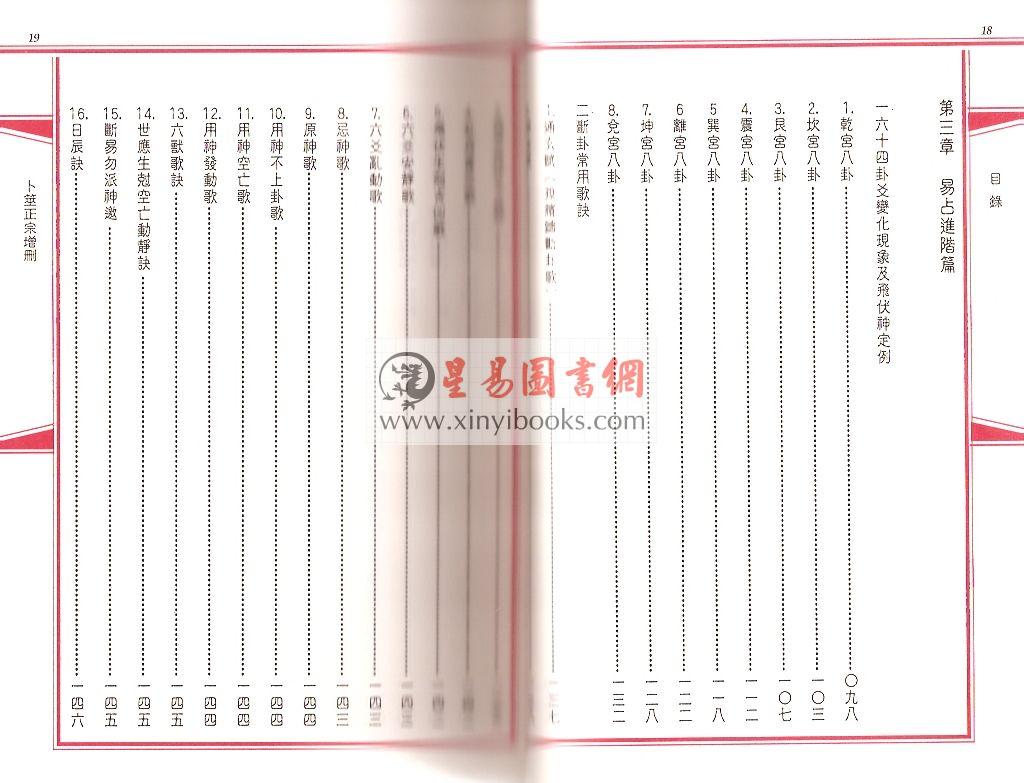 18
目錄
第三章 易占進階篇
一.六十四卦爻變化現象及飛伏神定例
1.乾宮八卦……〇九八
2.坎宮八卦……一〇三
3.艮宮八卦……一〇七
4.震宮八卦……一一二
5.巽宮八卦……一一八
6離宮八卦……一二二
7.坤宮八卦……一二八
8.兌宮八卦……一三二
二.斷卦常用歌訣
6.六爻安靜歌……一四三
7.六爻亂動歌……一四三
8.忌神歌……一四三
9.原神歌……一四四
10.用神不上卦歌……一四四
11.用神空亡歌……一四四
12.用神發動歌……一四四
13.六獸歌訣……一四五
14.世應生剋空亡動靜訣……一四五
15.斷易勿派神邀……一四五
16.日辰訣……一四六
卜筮正宗增刪
19
星易圖書網
www.xinyibooks.com